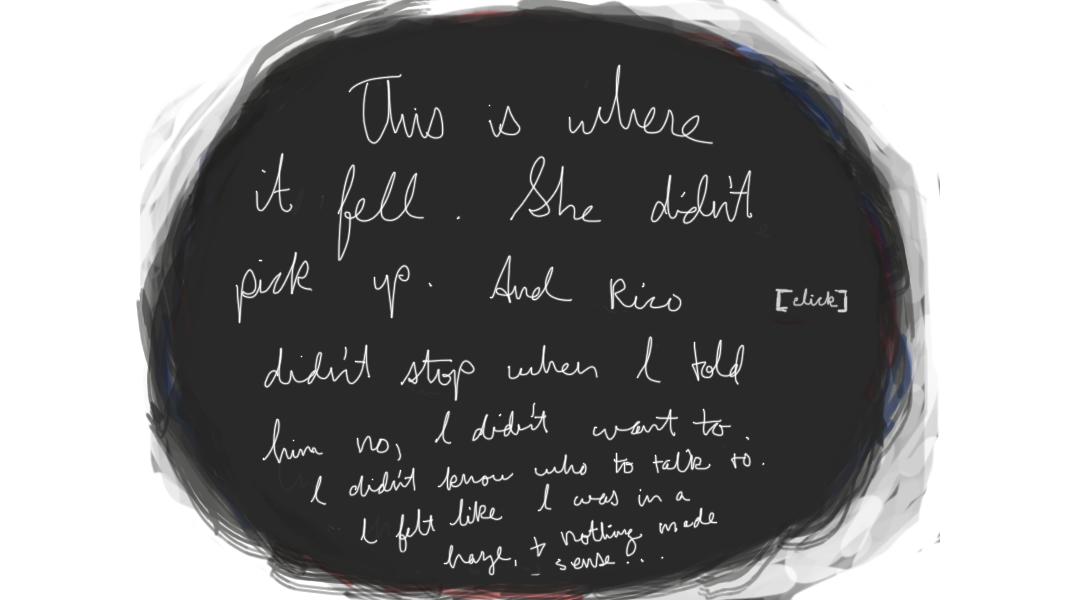 This is where
it fell. She didn't
pick up. And Rico
[click]
didn't stop when I told
him no, I didn't want to.
I didn't know who to talk to.
I felt like I was in a
haze, + nothing made
sense...